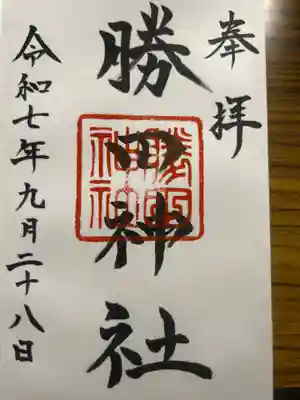 奉拝
勝田神社
令和七年九月二十八日